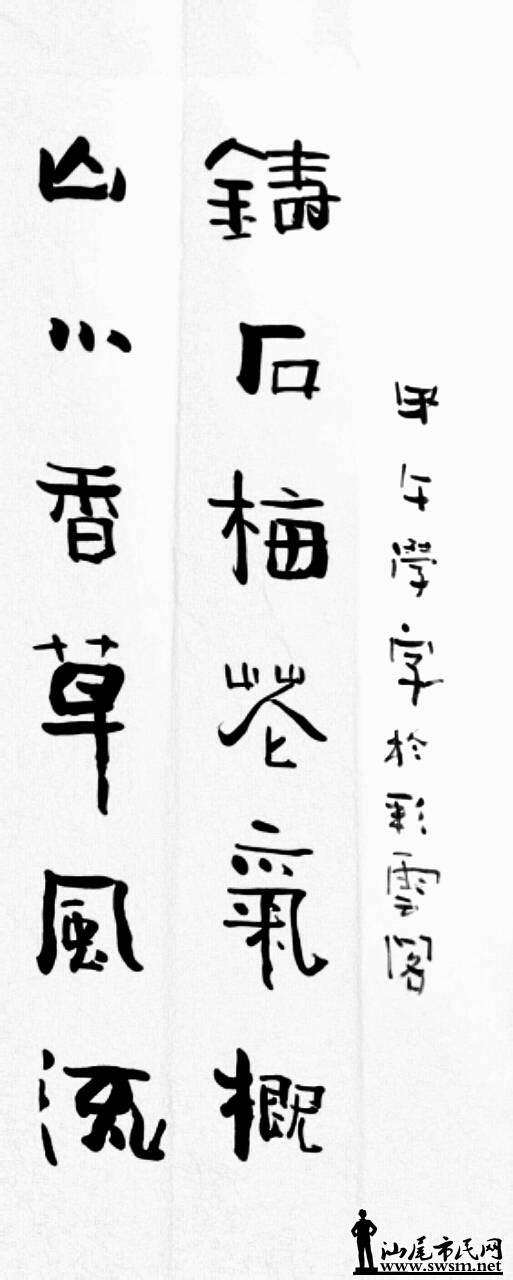 甲午學字於彩雲閣
鑄石梅花氣概
山川香草風流
汕尾市民网
www.swsm.net